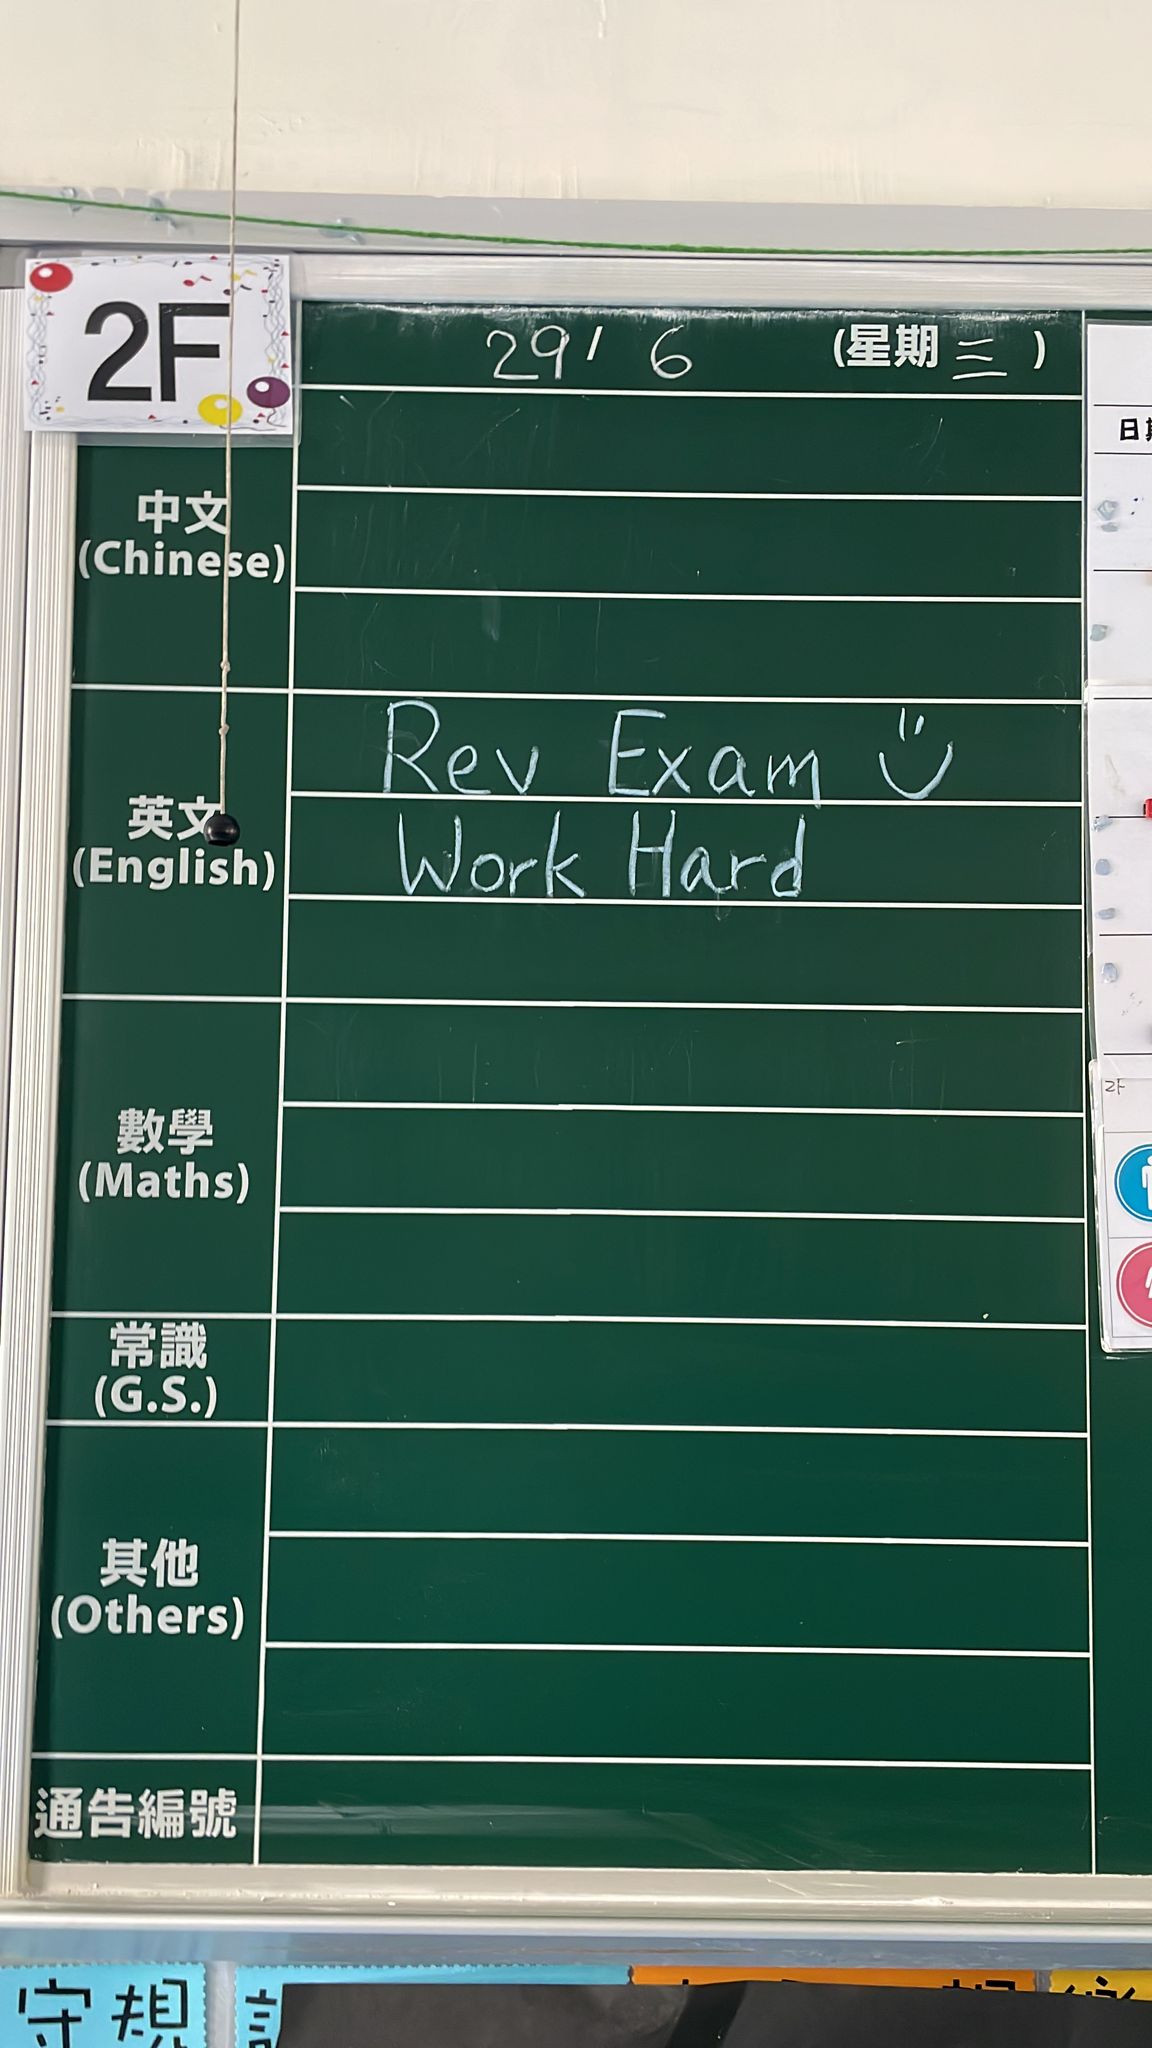 2F
29/ 6 (星期三)
中文
(Chinese)
英文
(English)
Rev Exam
Work Hard
數學
(Maths)
常識
(G.S.)
其他
(Others)
通告編號
日期
2F
守規